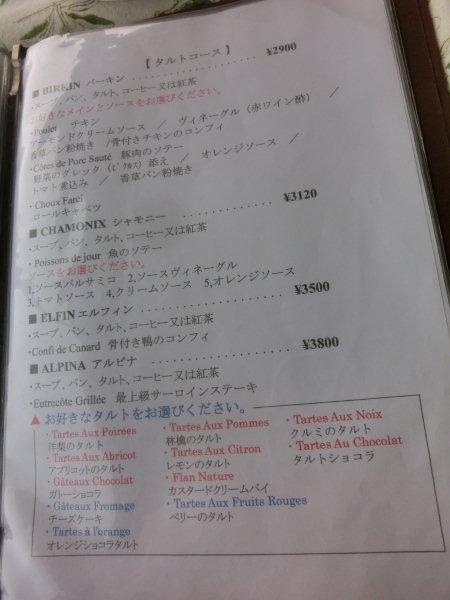 【 タルトコース 】
■ BIRKIN バーキン .................... ¥2900
・スープ、パン、タルト、コーヒー又は紅茶
お好きなメインとソースをお選びください。
・Poulet チキン
アーモンドクリームソース / ヴィネーグル（赤ワイン酢） /
香草パン粉焼き /骨付きチキンのコンフィ
・Côtes de Porc Sauté 豚肉のソテー
野菜のグレック（ﾋﾟｸﾙｽ）添え / オレンジソース /
トマト煮込み / 香草パン粉焼き
・Choux Farci
ロールキャベツ
■ CHAMONIX シャモニー .................... ¥3120
・スープ、パン、タルト、コーヒー又は紅茶
・Poissons de jour 魚のソテー
ソースをお選びください。
1,ソースバルサミコ 2,ソースヴィネーグル
3,トマトソース 4,クリームソース 5,オレンジソース
■ ELFIN エルフィン .................... ¥3500
・スープ、パン、タルト、コーヒー又は紅茶
・Confi de Canard 骨付き鴨のコンフィ
■ ALPINA アルピナ .................... ¥3800
・スープ、パン、タルト、コーヒー又は紅茶
・Eutrecôte Grillée 最上級サーロインステーキ
▲ お好きなタルトをお選びください。
・Tartes Aux Poirees
洋梨のタルト
・Tartes Aux Abricot
アプリコットのタルト
・Gâteaux Chocolat
ガトーショコラ
・Gâteaux Fromage
チーズケーキ
・Tartes à l'orange
オレンジショコラタルト
・Tartes Aux Pommes
林檎のタルト
・Tartes Aux Citron
レモンのタルト
・Flan Nature
カスタードクリームパイ
・Tartes Aux Fruits Rouges
ベリーのタルト
・Tartes Aux Noix
クルミのタルト
・Tartes Au Chocolat
タルトショコラ